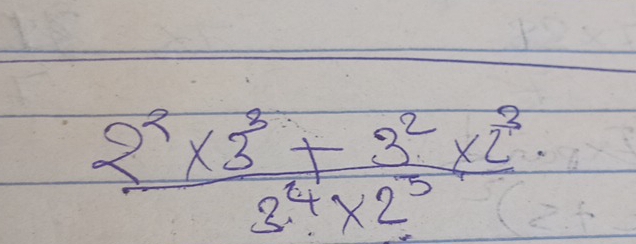 2² × 3³ + 3² × 2³
3⁴ × 2⁵